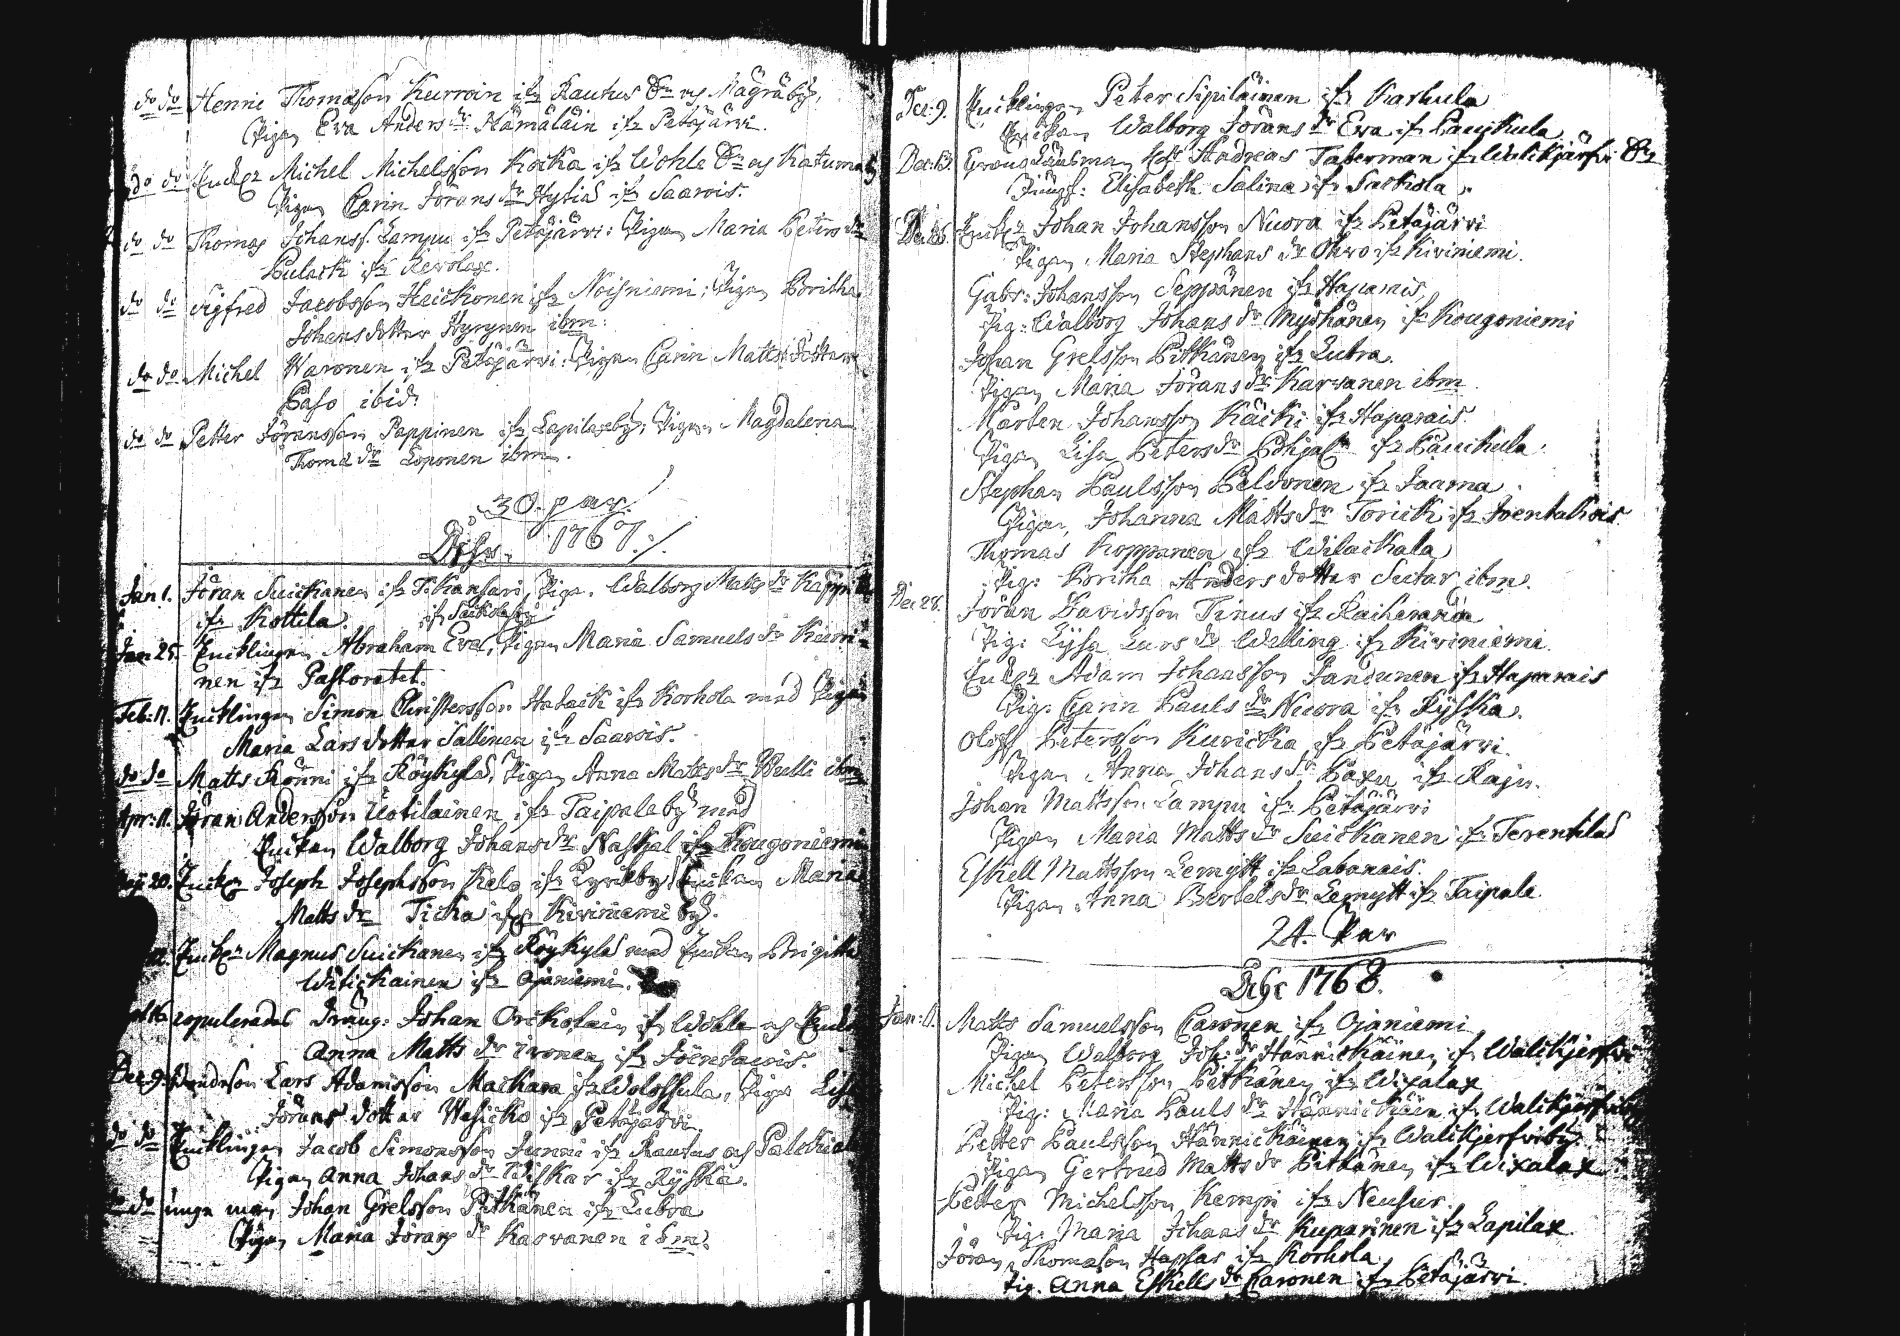 do do Henric Thomasson Kurroin ifr Rautus Sn og Mägräby,
Pigan Eva Anders dr Hämäläin ifr Petäjärvi.
do do Enkl. Michel Michelsson Koika ifr Wohle Sn og Katuma
Pigan Carin Jörans dr Hytiä ifr Saarois.
do do Thomas Johanss. Lampu ifr Petäjärvi: Pigan Maria Peters dr
Pulack ifr Revolax.
do do Sigfred Jacobsson Heickonen ifr Noisniemi; Pigan Boritha
Johans dotter Hyrynen ibm:
do do Michel Waronen ifr Petäjärvi: Pigan Carin Matts dotter
Paso ibid:
do do Petter Jöransson Pappinen ifr Lapilaxby; Pigan Magdalena
Thoms dr Loponen ibm.
30. par.
1767
Jan 1. Jöran Suickanen ifr T. Kansari, Piga. Walborg Matts dr
ifr Kottila. ifr Sackola by
Jan: 25. Enklingen Abraham Eva, Pigan Maria Samuels dr
nen ifr Pastoratet.
Feb: 11. Enklingen Simon Christersson Hatack ifr Korhola med Pigan
Maria Lars dotter Sallinen ifr Saarois.
do do Matts Rönni ifr Röykylä, Pigan Anna Matts dr Wulli ibm
Apr: 11. Jöran Andersson Uotilainen ifr Taipale by med
Enkan Walborg Johans dr Naskal ifr Kougoniemi
20. Enkl. Joseph Josephsson Kelo ifr Kyrkby, Enkan Maria
Matts dr Ticka ifr Kiviniemi by.
Enkl. Magnus Suickanen ifr Röykylä med Enkan Brigitta
Wälickainen ifr Ojaniemi.
copulerades Dräng: Johan Orickosain ifr Wohla og
Anna Matts dr Ivonen ifr
Dec. 9. Lars Adamsson Mackara ifr Wolossula, Piga Lisa
Jörans dotter Wesicko ifr Petäjärvi.
do do Enklingen Jacob Simonsson Junni ifr Rautus og
Pigan Anna Johans dr Wiskar ifr Ryska.
do do unge man Johan Grelsson Pitkänen ifr Lutra
Pigan Maria Jörans dr Karvanen ibm.
Dec: 9. Enklingen Peter Sipiläinen ifr Karhula
Enkan Walborg Jörans dr Eva ifr Pauckula
Dec: 13. Länsman Andreas Taberman ifr Walkjärfvi Sn
Jungf: Elisabeth Salina ifr Sackola.
Enkl. Johan Johansson Nuora ifr Petäjärvi
Pigan Maria Stephans dr Ohvo ifr Kiviniemi.
Gabr: Johansson Seppänen ifr Haparais,
Pig: Walborg Johans dr Myöhänen ifr Kougoniemi
Johan Grelsson Pitkänen ifr Lutra.
Pigan Maria Jörans dr Karvanen ibm.
Mårten Johansson Käcki ifr Haparais.
Pigan Lisa Peters dr Pohjal ifr Pauckula.
Stephan Paulsson Peldonen ifr Jaama.
Pigan, Johanna Matts dr Torick ifr
Thomas Koppanen ifr Wilackala
Pig: Boritha Anders dotter Sutar, ibm.
Dec 28. Jöran Davidsson Tinus ifr Raiheranda
Pig: Lysa Lars dr Welling ifr Kiviniemi.
Enkl. Adam Johansson Jandunen ifr Haparais
Pig: Carin Pauls dr Nuora ifr Ryska.
Oloff Petersson Kuricka ifr Petäjärvi.
Pigan Anna Johans dr Paxu ifr Raju.
Johan Mattsson Lampu ifr Petäjärvi
Pigan Maria Matts dr Suickanen ifr Terentilä
Eskell Mattsson Lemytt ifr Labanais.
Pigan Anna Bertels dr Lemytt ifr Taipale.
24. Par
1768.
Jan: Matts Samuelsson Paronen ifr Ojaniemi
Pigan Walborg Joh: dr Hännickäinen ifr Walkjerfvi
Michel Petersson Pitkänen ifr Wixalax
Pig: Maria Pauls dr Hännickäin ifr Walkjerfvi
Petter Paulsson Hännickäinen ifr Walkjerfviby.
Pigan Gertrud Matts dr Pitkänen ifr Wixalax
Petter Michelsson Kempi ifr Neusur.
Pig: Maria Johans dr Kuparinen ifr Lapilax
Jöran Thomasson Hapsas ifr Korhola.
Pig. Anna Eskells dr Paronen ifr Petäjärvi.